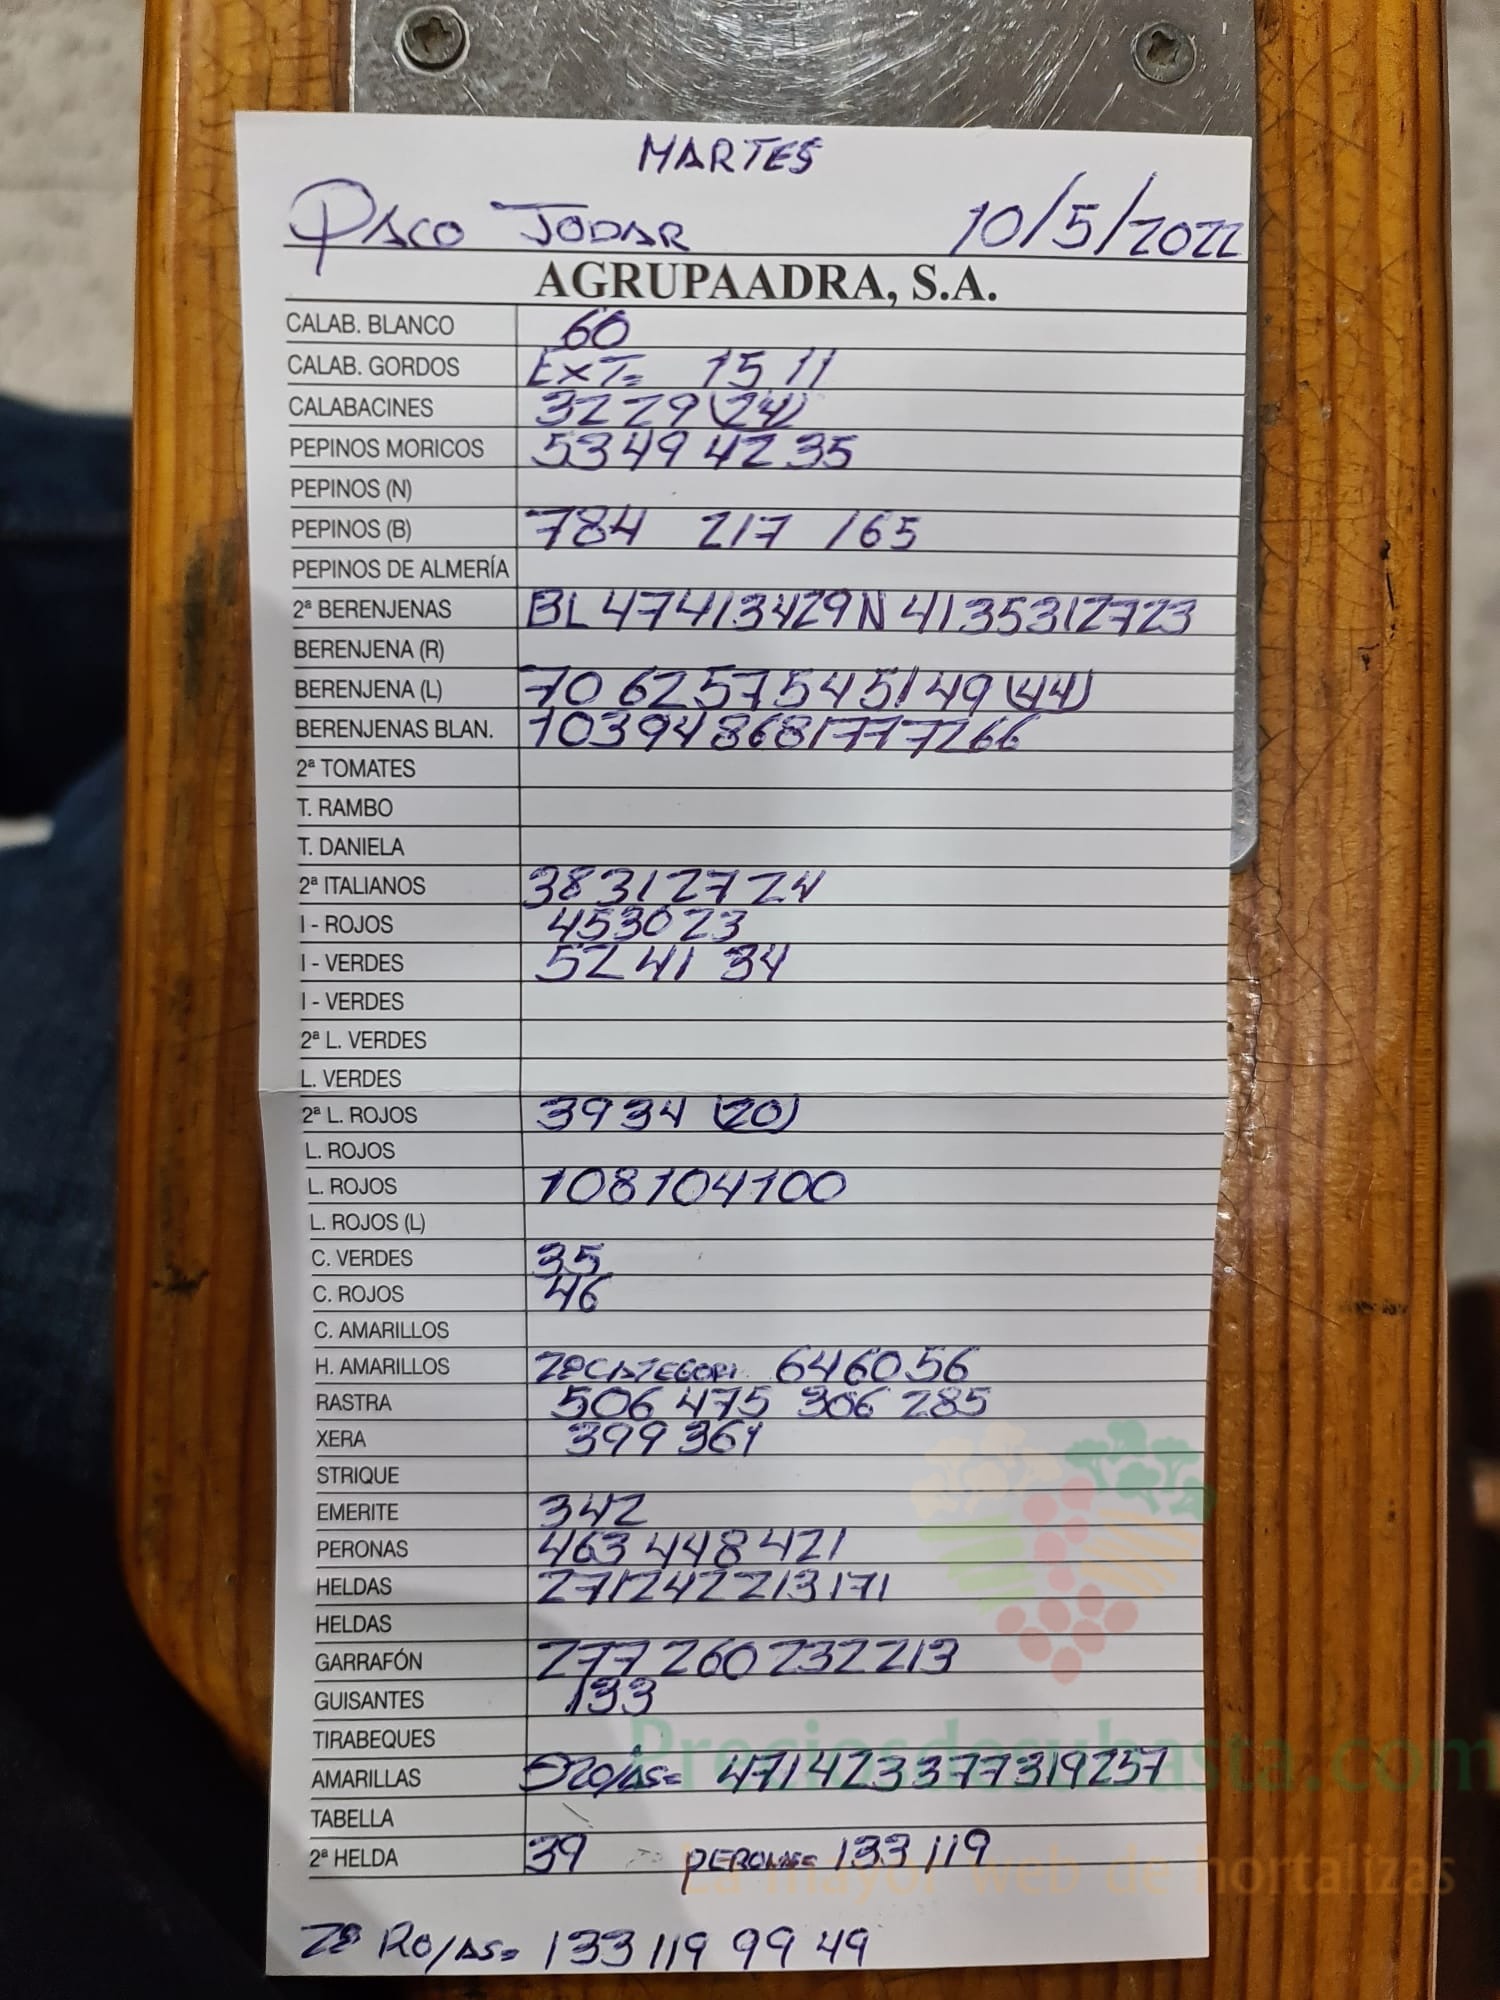 MARTES
PACO JODAR 10/5/2022
AGRUPAADRA, S.A.
CALAB. BLANCO 60
CALAB. GORDOS EXT= 15 11
CALABACINES 32 29 (24)
PEPINOS MORICOS 53 49 42 35
PEPINOS (N)
PEPINOS (B) 784 217 165
PEPINOS DE ALMERÍA
2ª BERENJENAS BL 47 41 34 29 N 41 35 31 27 23
BERENJENA (R)
BERENJENA (L) 70 62 57 54 51 49 (44)
BERENJENAS BLAN. 103 94 86 81 77 72 66
2ª TOMATES
T. RAMBO
T. DANIELA
2ª ITALIANOS 38 31 27 24
I - ROJOS 45 30 23
I - VERDES 52 41 34
I - VERDES
2ª L. VERDES
L. VERDES
2ª L. ROJOS 39 34 (20)
L. ROJOS
L. ROJOS 108 104 100
L. ROJOS (L)
C. VERDES 35
C. ROJOS 46
C. AMARILLOS
H. AMARILLOS 2ª CATEGORI 64 60 56
RASTRA 506 475 306 285
XERA 399 361
STRIQUE
EMERITE 342
PERONAS 463 448 421
HELDAS 271 242 213 171
HELDAS
GARRAFÓN 277 260 232 213
GUISANTES 133
TIRABEQUES
AMARILLAS ROJAS= 471 423 377 319 257
TABELLA
2ª HELDA 39 PERONAS= 133 119
2ª ROJAS= 133 119 99 49
Preciosdesubasta.com
La mayor web de hortalizas